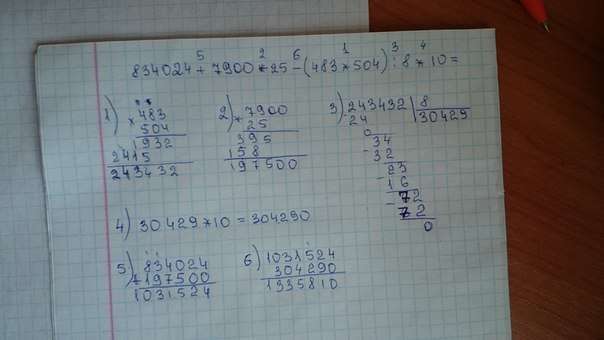 5 2 6 1 3 4
834024 + 7900 * 25 - (483 * 504) : 8 * 10 =
1) * 483
504
1932
2415
243432
2) * 7900
25
395
158
197500
3) 243432 | 8
24 30429
34
- 32
23
- 16
- 72
72
0
4) 30429 * 10 = 304290
5) 834024
+ 197500
1031524
6) 1031524
304290
1335810